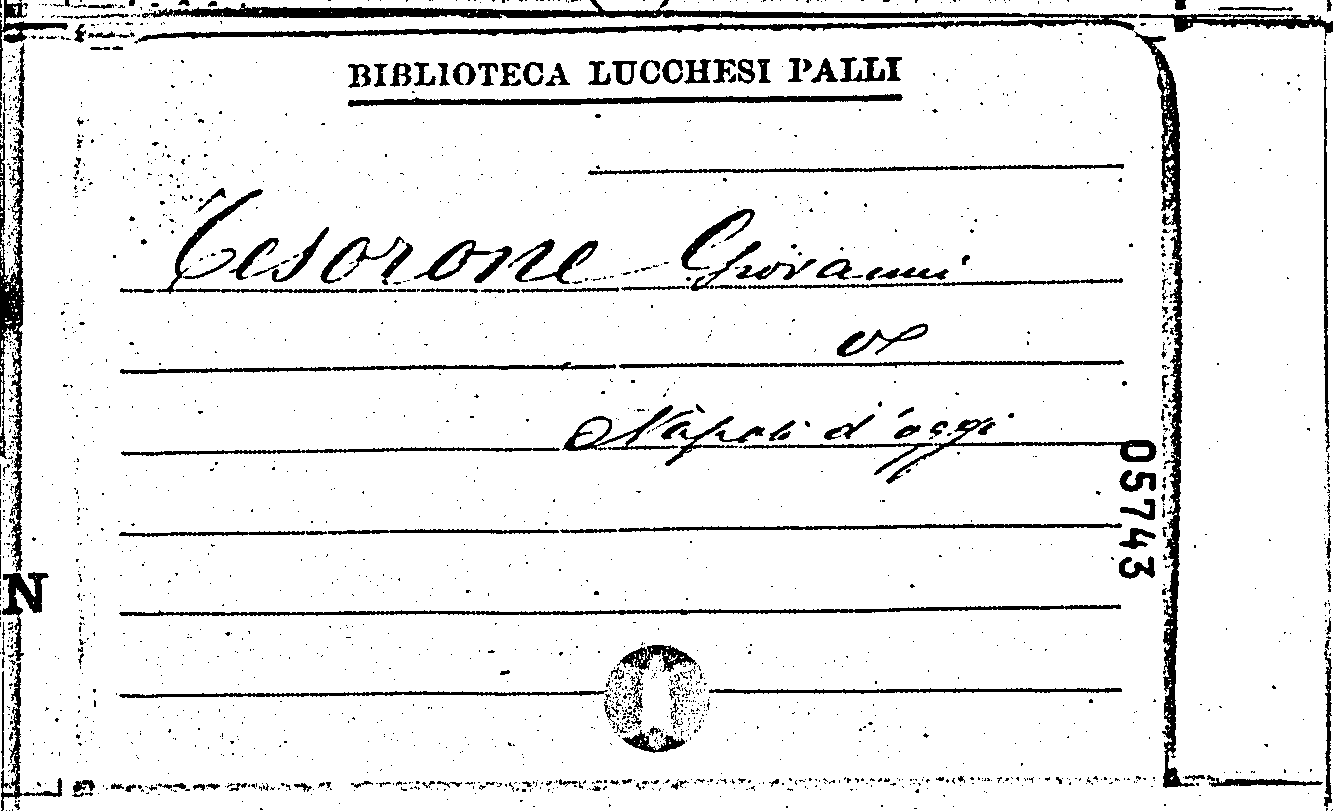 BIBLIOTECA LUCCHESI PALLI
Tesorone Giovanni
v
Napoli d'oggi
05743
N